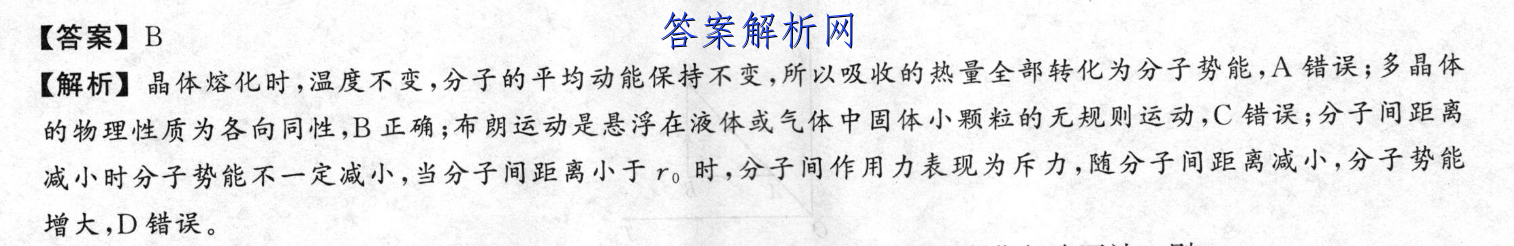 答案解析网
【答案】B
【解析】晶体熔化时,温度不变,分子的平均动能保持不变,所以吸收的热量全部转化为分子势能,A 错误;多晶体
的物理性质为各向同性,B 正确;布朗运动是悬浮在液体或气体中固体小颗粒的无规则运动,C 错误;分子间距离
减小时分子势能不一定减小,当分子间距离小于 r₀ 时,分子间作用力表现为斥力,随分子间距离减小,分子势能
增大,D 错误。